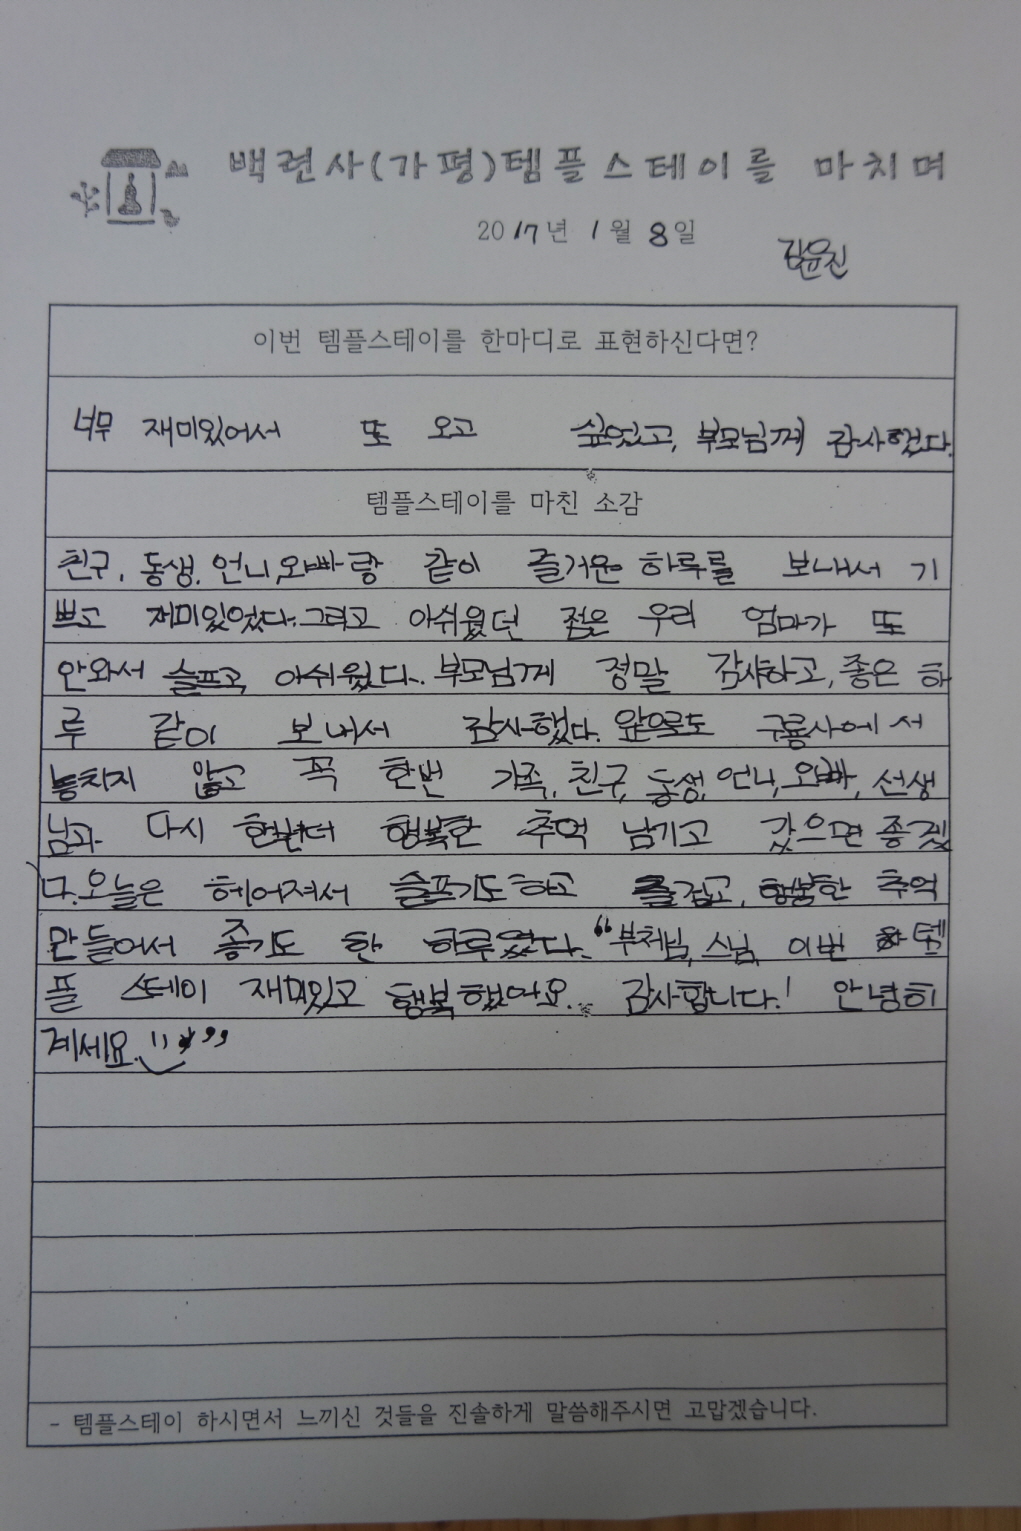 백련사(가평)템플스테이를 마치며
2017년 1월 8일
김윤진
이번 템플스테이를 한마디로 표현하신다면?
너무 재미있어서 또 오고 싶었고, 부모님께 감사했다.
템플스테이를 마친 소감
친구, 동생, 언니, 오빠랑 같이 즐거운 하루를 보내서 기
쁘고 재미있었다. 그리고 아쉬웠던 점은 우리 엄마가 또
안와서 슬프고 아쉬웠다. 부모님께 정말 감사하고, 좋은 하
루 같이 보내서 감사했다. 앞으로도 구룡사에서
놓치지 않고 꼭 한번 가족, 친구, 동생, 언니, 오빠, 선생
님과 다시 한번더 행복한 추억 남기고 갔으면 좋겠
다. 오늘은 헤어져서 슬프기도하고 즐겁고, 행복한 추억
만들어서 좋기도 한 하루였다. "부처님, 스님, 이번 템
플 스테이 재미있고 행복했어요. 감사합니다! 안녕히
계세요."
- 템플스테이 하시면서 느끼신 것들을 진솔하게 말씀해주시면 고맙겠습니다.